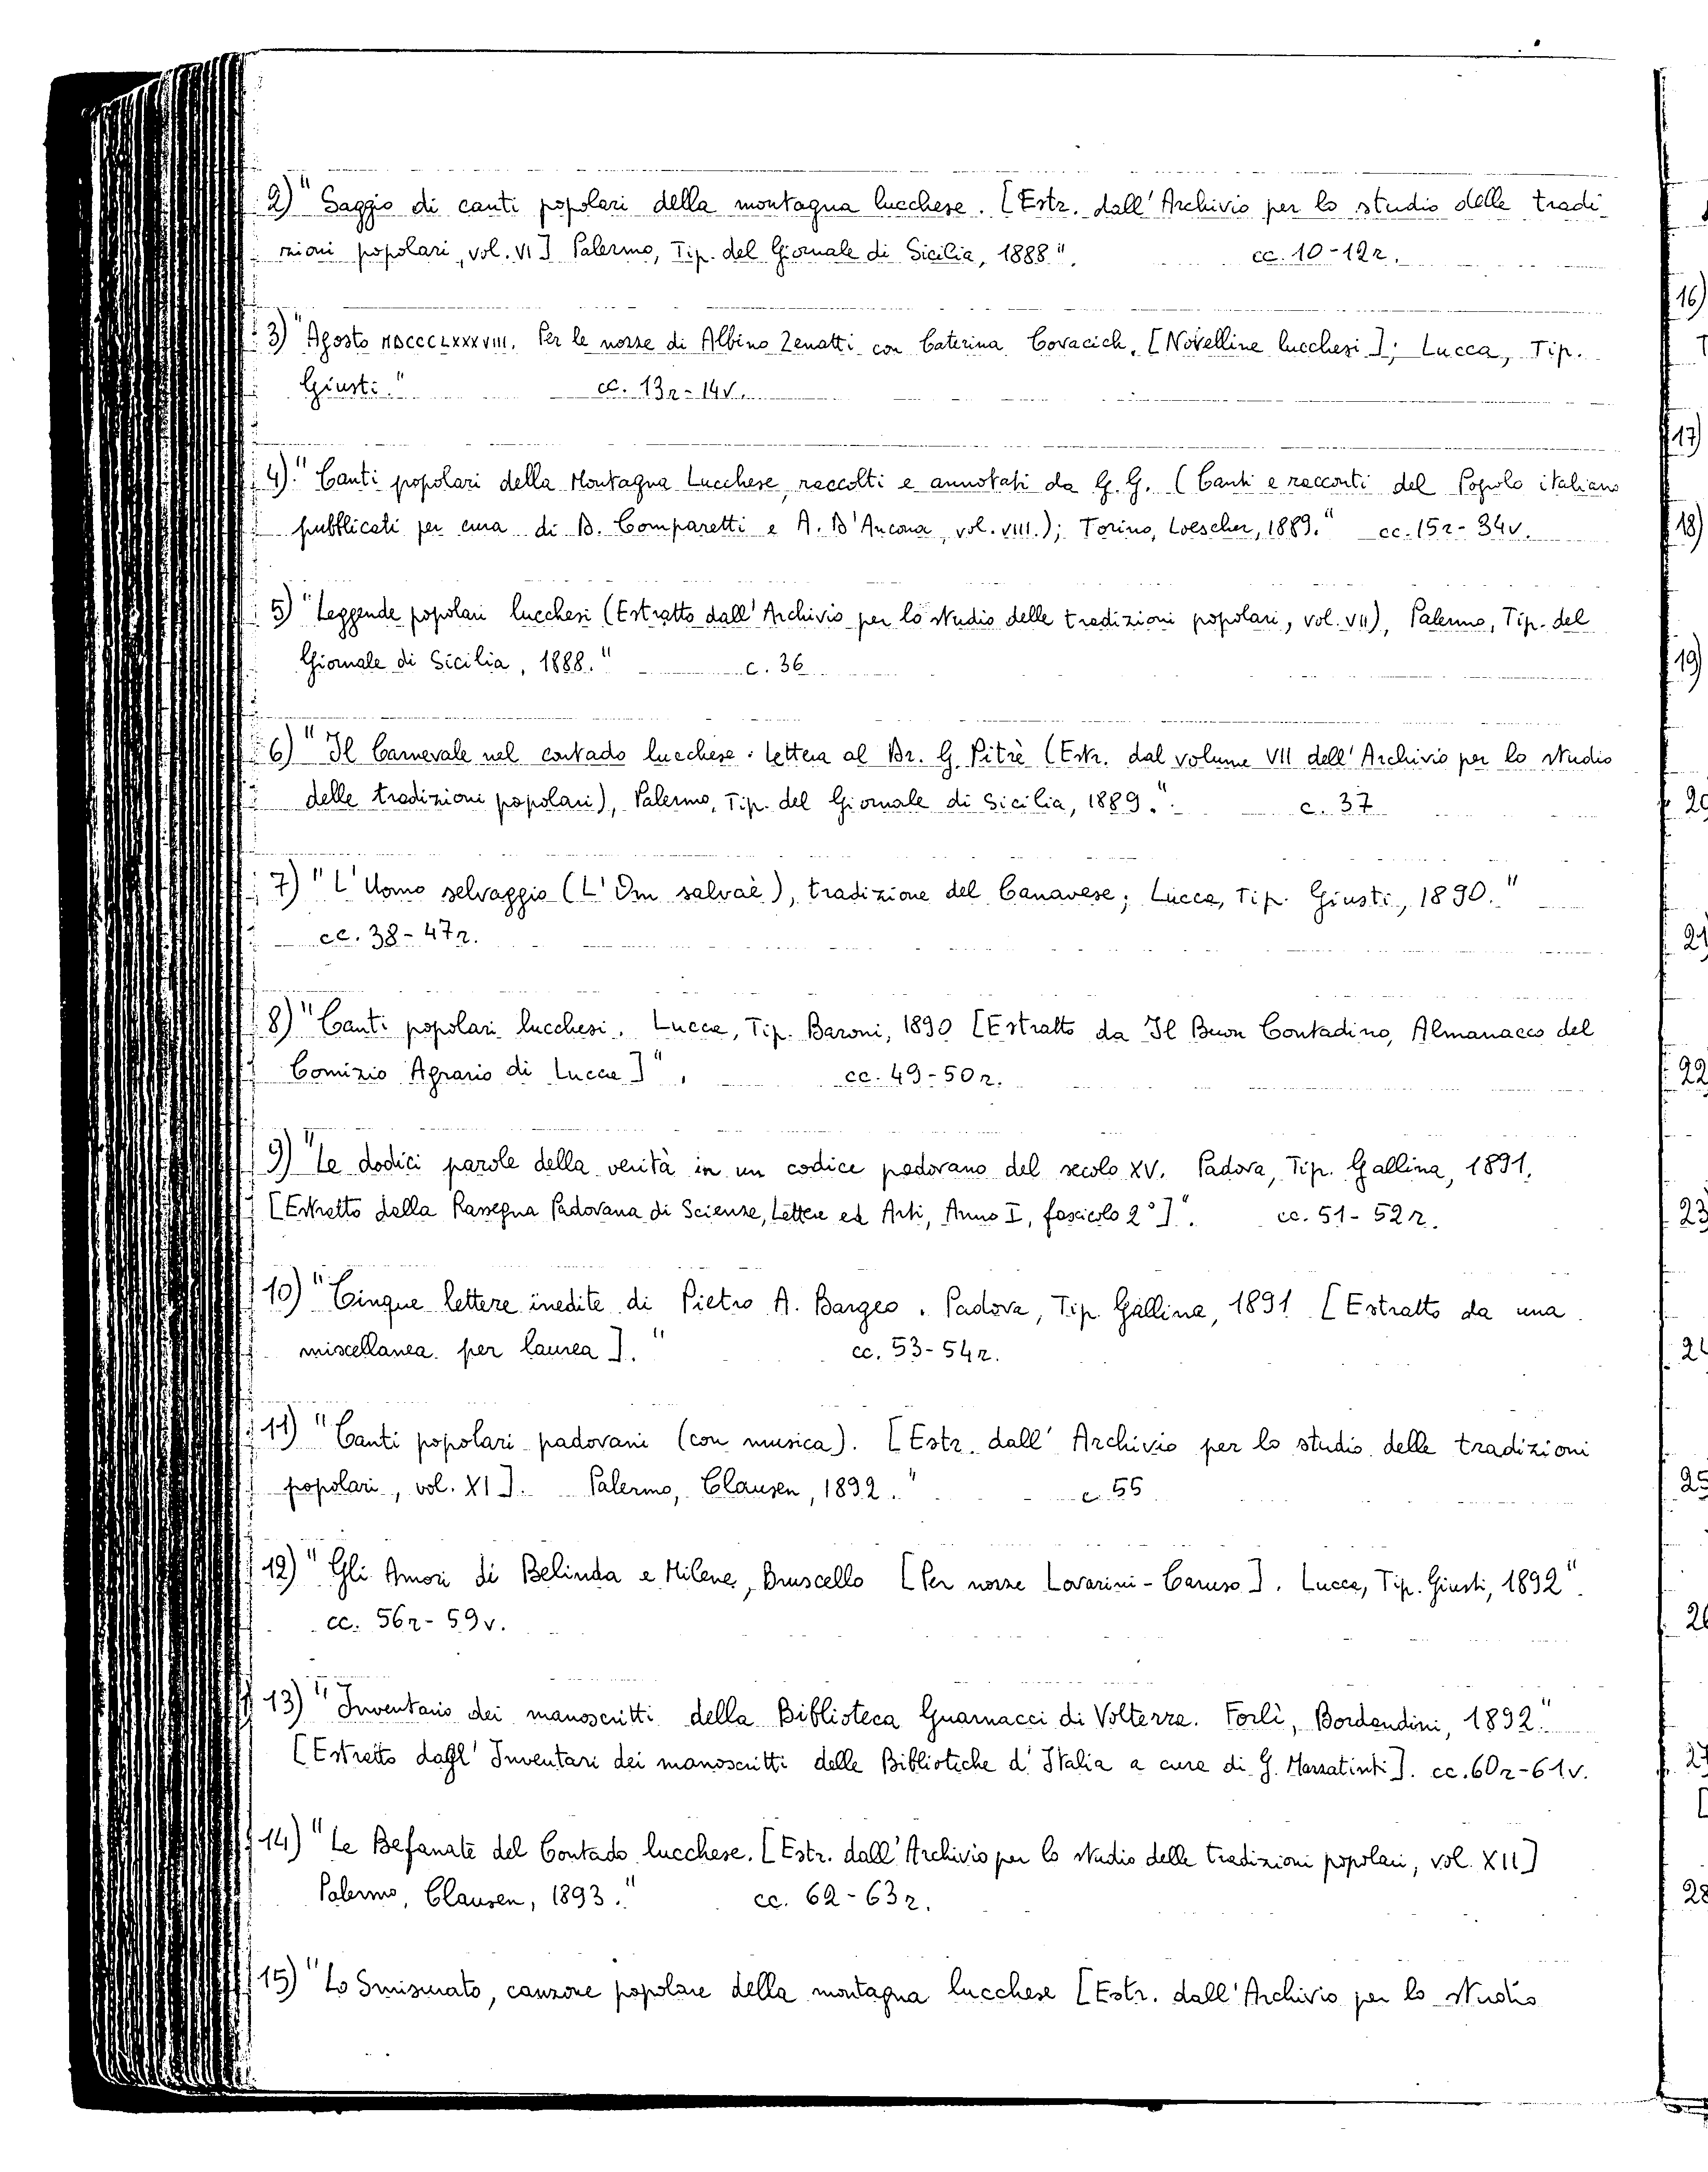 2) "Saggio di canti popolari della montagna lucchese. [Estr. dall'Archivio per lo studio delle tradi-
zioni popolari, vol. VI] Palermo, Tip. del Giornale di Sicilia, 1888". cc. 10-12r.
3) "Agosto MDCCCLXXXVIII. Per le nozze di Albino Zenatti con Caterina Covacich. [Novelline lucchesi]; Lucca, Tip.
Giusti." cc. 13r-14v.
4) "Canti popolari della Montagna Lucchese, raccolti e annotati da G. G. (Canti e racconti del Popolo italiano
pubblicati per cura di D. Comparetti e A. D'Ancona, vol. VIII.); Torino, Loescher, 1889." cc. 15r-34v.
5) "Leggende popolari lucchesi (Estratto dall'Archivio per lo studio delle tradizioni popolari, vol. VII), Palermo, Tip. del
Giornale di Sicilia, 1888." c. 36
6) "Il Carnevale nel contado lucchese: lettera al Dr. G. Pitrè (Estr. dal volume VII dell'Archivio per lo studio
delle tradizioni popolari), Palermo, Tip. del Giornale di Sicilia, 1889.". c. 37
7) "L'Uomo selvaggio (L'Om salvaè), tradizione del Canavese; Lucca, Tip. Giusti, 1890."
cc. 38-47r.
8) "Canti popolari lucchesi. Lucca, Tip. Baroni, 1890 [Estratto da Il Buon Contadino, Almanacco del
Comizio Agrario di Lucca]". cc. 49-50r.
9) "Le dodici parole della verità in un codice padovano del secolo XV. Padova, Tip. Gallina, 1891.
[Estratto dalla Rassegna Padovana di Scienze, Lettere ed Arti, Anno I, fascicolo 2°]". cc. 51-52r.
10) "Cinque lettere inedite di Pietro A. Bargeo. Padova, Tip. Gallina, 1891 [Estratto da una
miscellanea per laurea]." cc. 53-54r.
11) "Canti popolari padovani (con musica). [Estr. dall'Archivio per lo studio delle tradizioni
popolari, vol. XI]. Palermo, Clausen, 1892." c. 55
12) "Gli Amori di Belinda e Milene, Bruscello [Per nozze Lovarini-Caruso]. Lucca, Tip. Giusti, 1892".
cc. 56r-59v.
13) "Inventario dei manoscritti della Biblioteca Guarnacci di Volterra. Forlì, Bordandini, 1892."
[Estratto dagl'Inventari dei manoscritti delle Biblioteche d'Italia a cura di G. Mazzatinti]. cc. 60r-61v.
14) "Le Befanate del Contado lucchese. [Estr. dall'Archivio per lo studio delle tradizioni popolari, vol. XII]
Palermo, Clausen, 1893." cc. 62-63r.
15) "Lo Smisurato, canzone popolare della montagna lucchese [Estr. dall'Archivio per lo studio
16)
17)
18)
19)
20
21
22
23
25
27
28